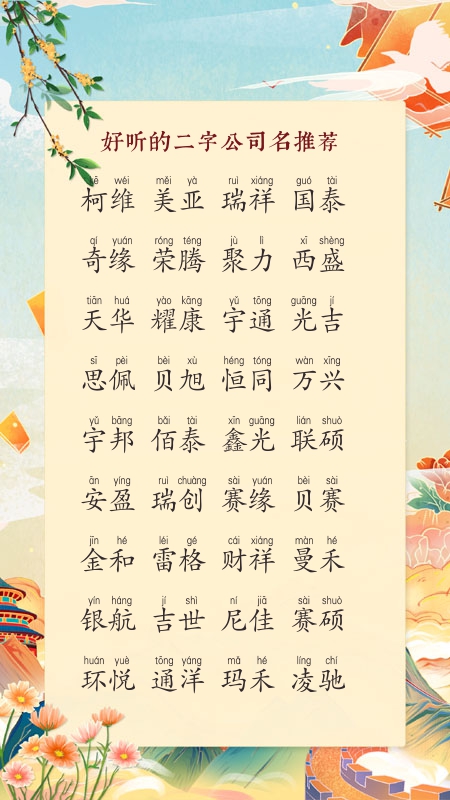 好听的二字公司名推荐
kē wéi měi yà ruì xiáng guó tài
柯维 美亚 瑞祥 国泰
qí yuán róng téng jù lì xī shèng
奇缘 荣腾 聚力 西盛
tiān huá yào kāng yǔ tōng guāng jí
天华 耀康 宇通 光吉
sī pèi bèi xù héng tóng wàn xīng
思佩 贝旭 恒同 万兴
yǔ bāng bǎi tài xīn guāng lián shuò
宇邦 佰泰 鑫光 联硕
ān yíng ruì chuàng sài yuán bèi sài
安盈 瑞创 赛缘 贝赛
jīn hé léi gé cái xiáng màn hé
金和 雷格 财祥 曼禾
yín háng jí shì ní jiā sài shuò
银航 吉世 尼佳 赛硕
huán yuè tōng yáng mǎ hé líng chí
环悦 通洋 玛禾 凌驰